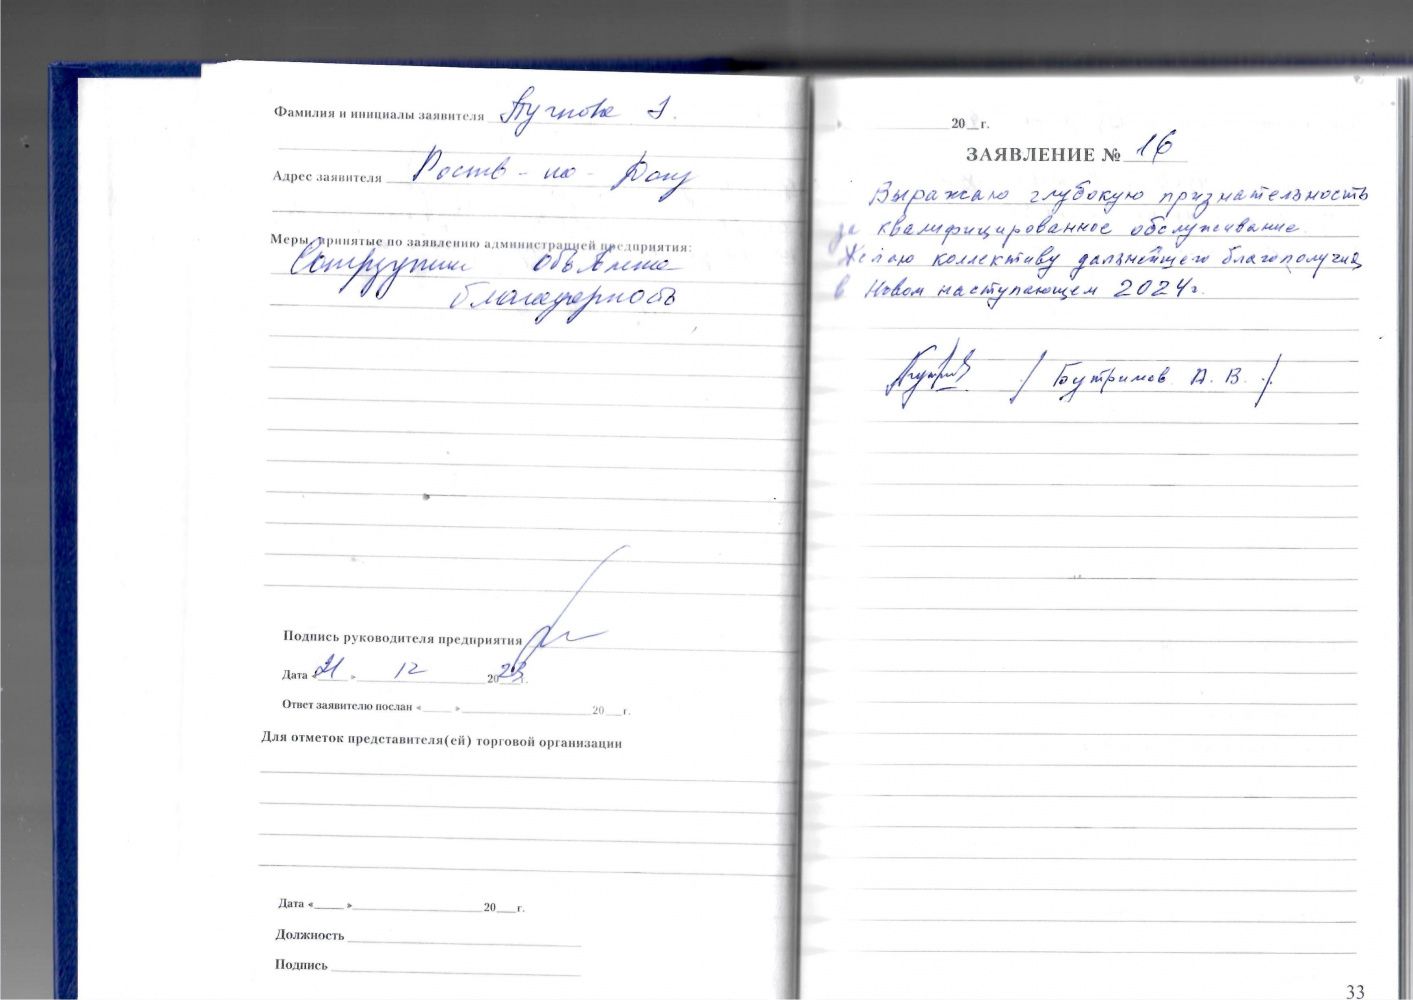 Фамилия и инициалы заявителя
Адрес заявителя Роств-на-Дону
Меры, принятые по заявлению администрацией предприятия:
объявлена
благодарность
Подпись руководителя предприятия
Дата «21» 12 2023 г.
Ответ заявителю послан «____» ____ 20__г.
Для отметок представителя(ей) торговой организации
Дата «____» ____ 20__г.
Должность
Подпись
20__г.
ЗАЯВЛЕНИЕ № 16
Выражаю глубокую признательность
за квалифицированное обслуживание.
Желаю коллективу дальнейшего благополучия
в Новом наступающем 2024г.
/ Бутримов А. В. /
33